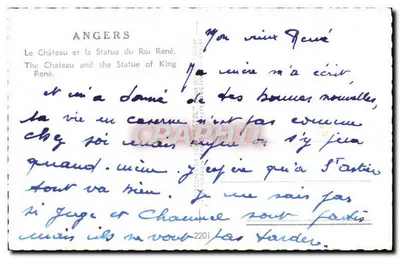 ANGERS
Le Château et la Statue du Roi René.
The Chateau and the Statue of King
René.
Mon vieux René
Ta mère m'a écrit,
et m'a donné de tes bonnes nouvelles,
ta vie en caserne n'est pas comme
chez soi mais on s'y fera
quand-même. J'espère qu'à St
tout va bien. Je ne sais pas
si Juge et sont partis
mais ils ne vont pas tarder.
2201